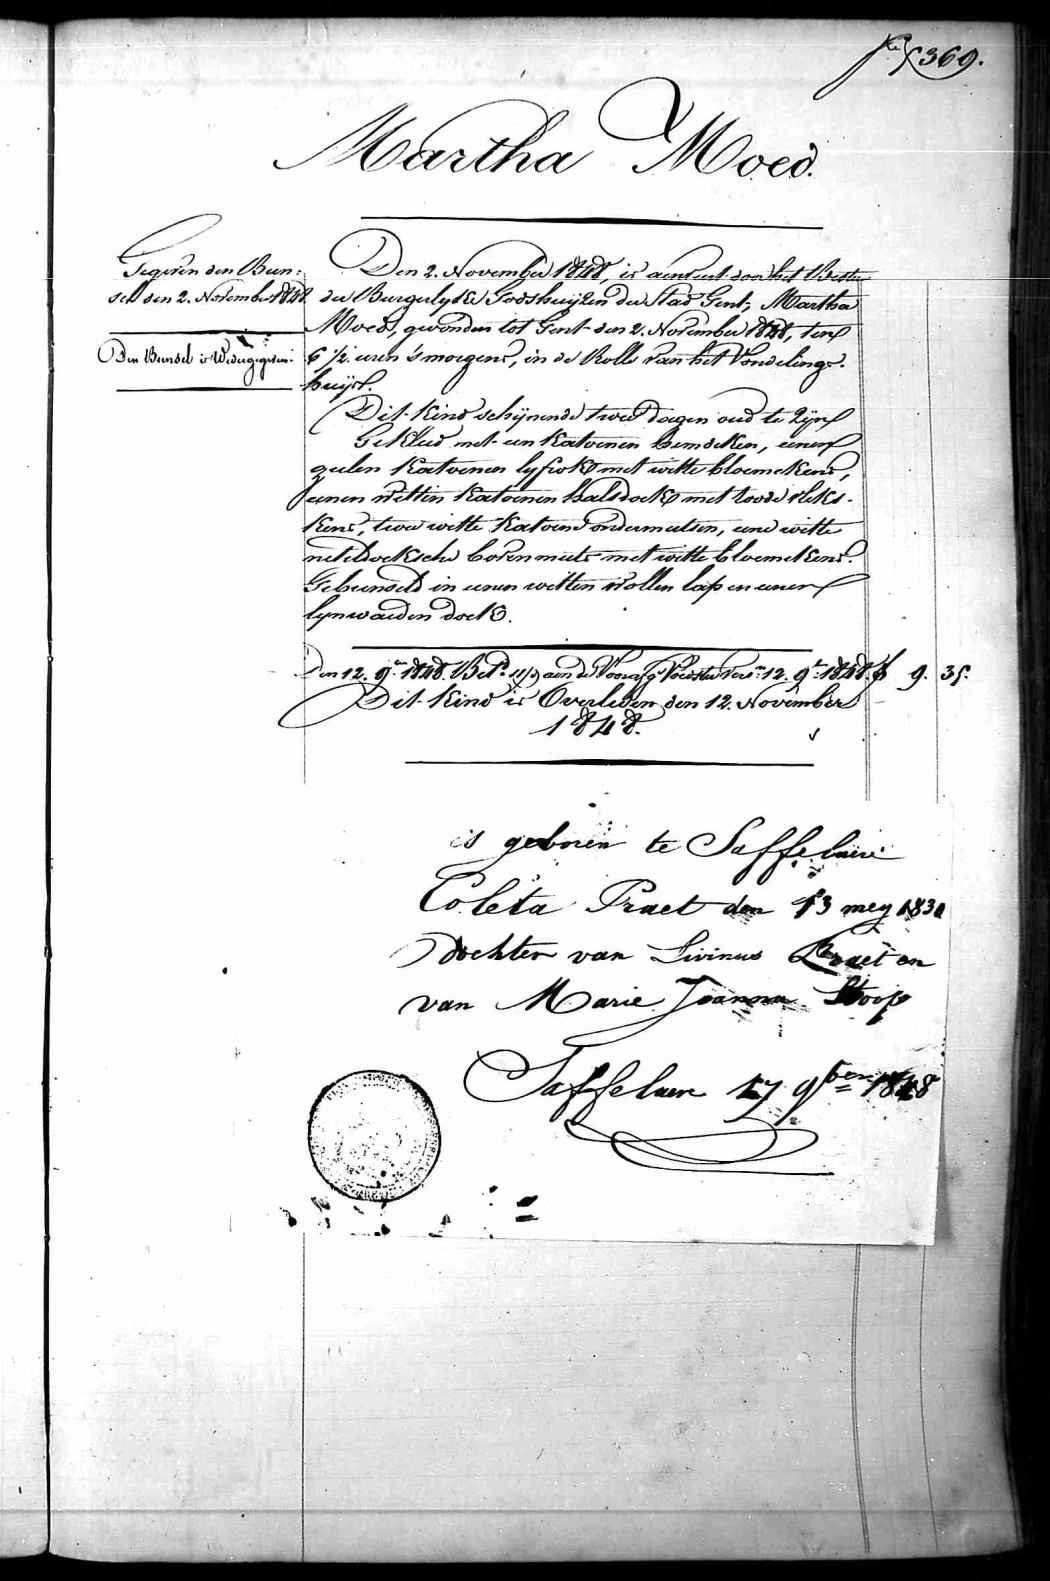 369.
Martha Moed.
Gegeven den Bun-
sel den 2. November 1848.
Den Bunsel is Wedergegeven
Den 2. November 1848, is aenveert door het Bestier
der Burgerlyke Godshuijzen der Stad Gent, Martha
Moed, gevonden tot Gent den 2. November 1848, ten
6 1/2 uren 's morgens, in de Rolle van het Vondeling-
huijs.
Dit kind schijnende twee dagen oud te zijn
Gekleed met een katoenen hemdeken, eenen
geelen katoenen lyfrok met witte bloemekens,
eenen witten katoenen halsdoek met roode vleks-
kens, twee witte katoene ondermutsen, eene witte
neteldoeksche bovenmuts met witte bloemekens.
Gebunseld in eenen witten wollen lap en eenen
lynwaeden doek.
Den 12. 9.br 1848. Bet.d aen de Voedster 12. 9.br 1848. f 9. 35.
Dit kind is Overleden den 12. November
1848.
is geboren te Saffelaere
Coleta Praet den 13 mey 1831
dochter van Livinus Praet en
van Marie Joanna Stoop
Saffelaere 17 9ber 1848